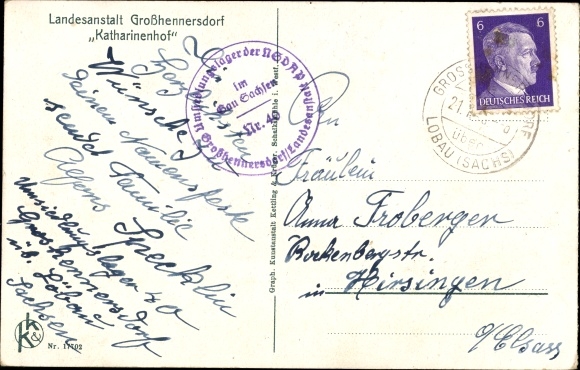 Landesanstalt Großhennersdorf
„Katharinenhof“
Die
herzlichsten
Wünsche zu
deinem Namensfeste
sendet Familie
Alfons Specklin
Umsiedlungslager 40
Grosshennersdorf
üb. Löbau
Sachsen
Nr. 17702
Umsiedlungslager der NSDAP
im
Gau Sachsen
Nr. 4
Großhennersdorf/Landesanstalt
Graph. Kunstanstalt Kettling & Krüger, Schalksmühle i. Westf.
6 6
DEUTSCHES REICH
GROSS RF
21.
über
LÖBAU (SACHS)
An
Fräulein
Anna Froberger
Rockenbergstr.
in Hirsingen
o/Elsass